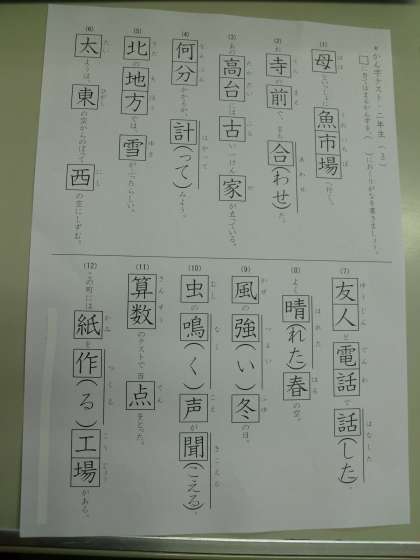 ＊かん字テスト・二年生（３）
□にあてはまるかん字を、（　）におくりがなを書きましょう。
(1) 母といっしょに魚市場へ行く。
(2) お寺の前で、まち合（わせ）た。
(3) あの高台には古い一けん家が立っている。
(4) 何分かかるか、計（って）みよう。
(5) 北の地方では、雪がふったらしい。
(6) 太ようは、東の空からのぼって西の空にしずむ。
(7) 友人と電話で話（した）。
(8) よく晴（れた）春の空。
(9) 風の強（い）冬の日。
(10) 虫の鳴（く）声が聞（こえる）。
(11) 算数のテストで百点をとった。
(12) この町には紙を作（る）工場がある。